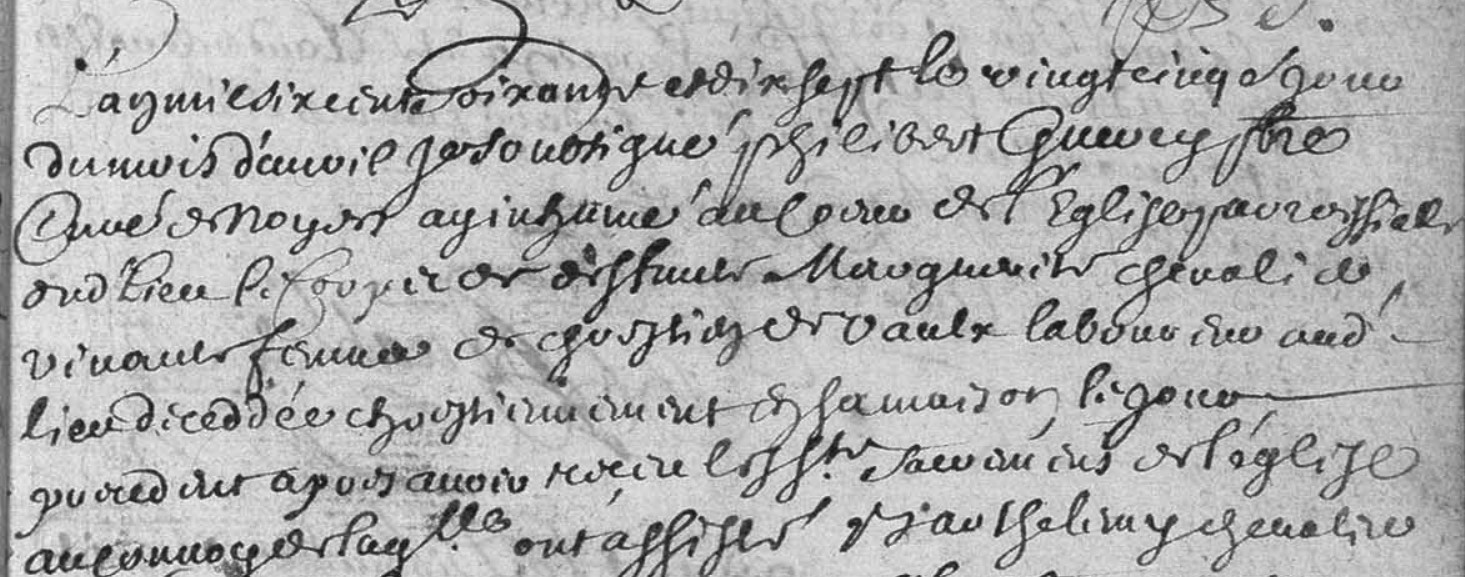 L'an mil six cent soixante et dix sept le vingt cinq jour
du mois d'avril je soubsigné philibert pbre
Curé de Noyers ay inhumé au de l'Eglise parroissialle
dud lieu le corps de deffunte Marguerite chevalier
vivante femme de chrestien de vaulx laboureur aud
lieu deceddée chrestiennement en sa maison le jour
precedent apres avoir receu les Sts Sacremens de l'église
au convoy de laqlle ont assisté Barthelemy chevalier